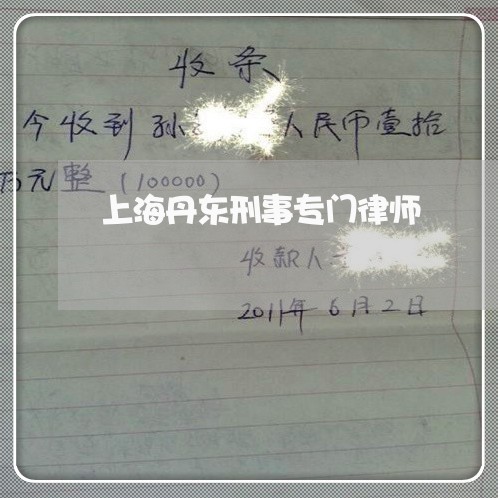 收条
今收到孙 人民币壹拾
万元整(100000)
上海丹东刑事专门律师
收款人
2011年6月2日